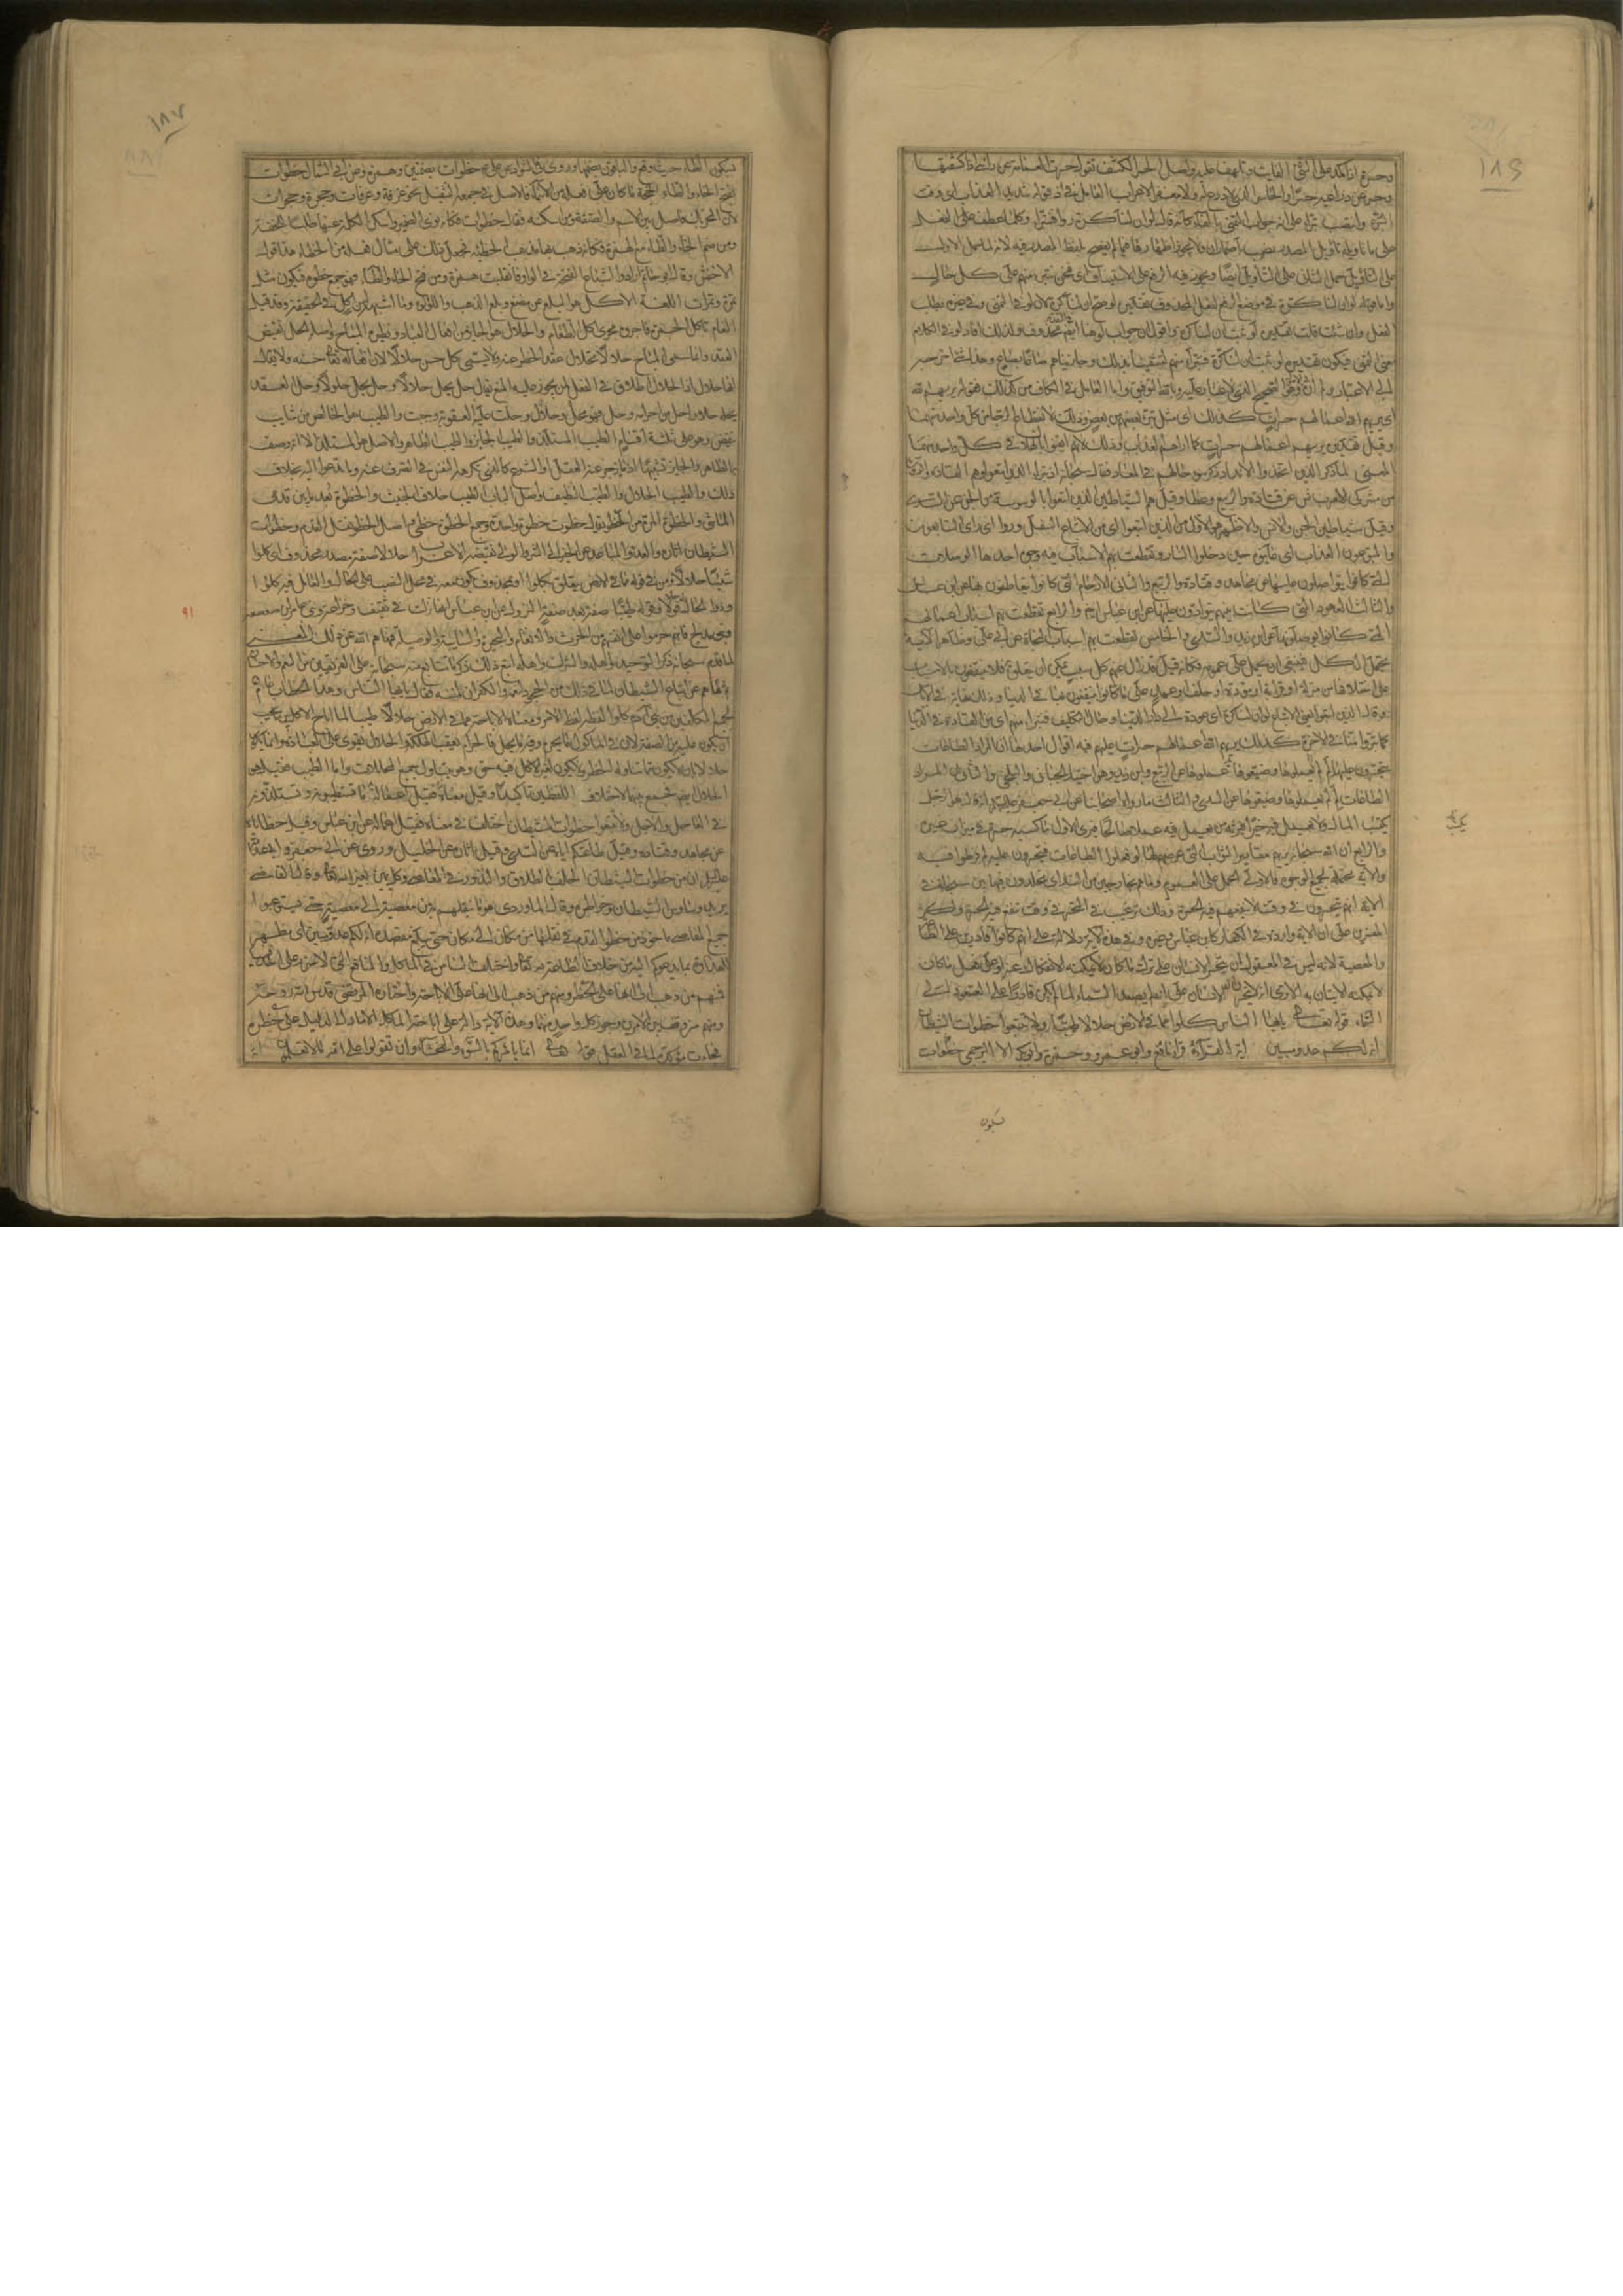 ١٨٦
وحسرة اذا كمد على الشئ الفايت وتلهف عليه واصل الحسر الكشف تقول حسرت العمامة عن راسى اذا كشفتها
وحسر عن ذراعيه حسرا والحاسر الذى لا درع عليه ولا مغفر الاعراب العامل فى اذ قوله شديد العذاب اى وقت
التبرؤ وانتصب فنتبرا على انه جواب التمنى بالفاء كانه قال لو ان لنا كرة فتبرؤا وكلما عطف على الفعل
على ما تاويله تاويل المصدر نصب باضمار ان ولا يجوز اظهارها فيما لم يفصح بلفظ المصدر فيه لانه لما حمل الاول
على التاويل حمل الثانى على التاويل ايضا ويجوز فيه الرفع على الاستيناف اى فنحن نتبرا منهم على كل حال
واما قوله لو ان لنا كرة فى موضع الرفع لفعل محذوف تقديره لو صح ان لنا كرة لان لو فى التمنى وفى غيره يطلب
الفعل وان شئت قلت تقديره لو ثبت ان لنا كرة واقول ان جواب لو هنا ايضا فى التقدير محذوف ولذلك افاد لو فى الكلام
معنى التمنى فيكون تقديره لو ثبت ان لنا كرة فنتبرا منهم لتشفينا بذلك وجازيناهم صاعا بصاع وهذا شئ اخر خبر
يريهم الله اعمالهم حسرات كذلك اى مثل تبرى بعضهم من بعض وذلك لانقطاع الرجاء من كل واحد منهما
وقيل تقديره يريهم اعمالهم حسرات كما اراهم العذاب وذلك لانهم ايقنوا بالهلاك فى كل واحد منهما
المعنى لما ذكر الذين اتخذوا الانداد ذكر سوء حالهم فى المعاد فقال سبحانه اذ تبرا الذين اتبعوا وهم القادة والرؤساء
من مشركى الانس عن قتادة والربيع وعطا وقيل هم الشياطين الذين اتبعوا بالوسوسة من الجن عن السدى
وقيل شياطين الجن والانس والاظهر هو الاول من الذين اتبعوا اى من الاتباع السفل وراوا اى راى التابعون
والمتبوعون العذاب اى عاينوه حين دخلوا النار وتقطعت بهم الاسباب فيه وجوه احدها الوصلات
التى كانوا يتواصلون عليها عن مجاهد وقتادة والربيع والثانى الارحام التى كانوا يتعاطفون بها عن ابن عباس
والثالث العهود التى كانت بينهم يتوادون عليها عن ابن عباس ايضا والرابع تقطعت بهم اسباب اعمالهم
التى كانوا يوصلونها عن ابن زيد والسدى والخامس تقطعت بهم اسباب النجاة عن ابى على وظاهر الاية
يحتمل الكل فينبغى ان يحمل على عمومه فكانه قيل قد زال عنهم كل سبب يمكن ان يتعلق به فلا ينتفعون بالاسباب
على اختلافها من منزلة او قرابة او مودة او حلف او عهد على ما كانوا ينتفعون بها فى الدنيا وذلك نهاية فى الاياس
وقال الذين اتبعوا يعنى الاتباع لو ان لنا كرة اى عودة الى دار الدنيا وحال التكليف فنتبرا منهم اى من القادة فى الدنيا
كما تبرؤا منا فى الاخرة كذلك يريهم الله اعمالهم حسرات عليهم فيه اقوال احدها ان المراد الطاعات
يتحسرون عليها لم لم يعملوها وضيعوها
الطاعات لم لم يعملوها وضيعوها عن السدى والثالث ما رواه اصحابنا عن ابى جعفر عليه السلام انه قال هو الرجل
يكسب المال ولا يعمل فيه خيرا فيرثه من يعمل فيه عملا صالحا فيرى الاول ما كسبه حسرة فى ميزان غيره
والرابع ان الله سبحانه يريهم مقادير الثواب التى عرضهم لها لو فعلوا الطاعات فيتحسرون عليه لم فرطوا فيه
والاية محتملة لجميع الوجوه فالاولى الحمل على العموم وما هم بخارجين من النار اى يخلدون فيها بين سبحانه فى
الاية انهم يتحسرون فى وقت لا ينفعهم فيه الحسرة وذلك ترغيب فى التحسر فى وقت تنفع فيه الحسرة واكثر
المفسرين على ان الاية واردة فى الكفار كابن عباس وغيره وفى هذه الاية دلالة على انهم كانوا قادرين على الطاعة
والمعصية لانه ليس فى المعقول ان يتحسر الانسان على ترك ما كان لا يمكنه الانفكاك عنه او على فعل ما كان
لا يمكنه الاتيان به الا ترى انه لا يتحسر الانسان على انه لم يصعد السماء لما لم يكن قادرا على الصعود الى
السماء قوله تعالى يا ايها الناس كلوا مما فى الارض حلالا طيبا ولا تتبعوا خطوات الشيطان
انه لكم عدو مبين اية القراءة قرا نافع وابو عمرو وحمزة وابو بكر الا البرجمى خطوات
بسكون
١٨٧
بسكون الطاء حيث وقع والباقون بضمها وروى فى الشواذ عن على ع خطؤات بضمتين وهمزة وعن ابى السمال خطوات
بفتح الخاء والطاء الحجة ما كان على فعلة من الاسماء فالاصل فى جمعه التثقيل نحو غرفة وغرفات وحجرة وحجرات
لان التحريك فاصل بين الاسم والصفة ومن اسكنه فقال خطوات فكانه نوى الضمة واسكن الكلمة عنها طلبا للخفة
ومن ضم الخاء والطاء مع الهمزة فكانه ذهب بها مذهب الخطيئة فجعل ذلك على مثال فعلة من الخطاء هذا قول
الاخفش وقال ابو حاتم ارادوا اشباع الضمة فى الواو فانقلبت همزة ومن فتح الخاء والطاء فهو جمع خطوة فيكون مثل
تمرة وتمرات اللغة الاكل هو البلع عن مضغ وبلع الذهب واللؤلؤ وما اشبهه ليس باكل فى الحقيقة وقد قيل
النعام تاكل الجمر فاجروه مجرى اكل الطعام والحلال هو الجايز من افعال العباد ونظيره المباح واصله الحل نقيض
العقد وانما سمى المباح حلالا لانحلال عقد الحظر عنه ولا يسمى كل حسن حلالا لان افعاله تعالى حسنة ولا يقال
انها حلال اذ الحلال اطلاق فى الفعل لمن يجوز عليه المنع يقال حل يحل حلالا وحل يحل حلولا وحل العقد
يحله حلا واحل من احرامه وحل فهو محل وحلال وحلت عليه العقوبة وجبت والطيب هو الخالص من شايب
ينغص وهو على ثلثة اقسام الطيب المستلذ والطيب الجايز والطيب الطاهر والاصل هو المستلذ الا انه وصف
به الطاهر والجايز تشبيها اذ ما يزجر عنه العقل او الشرع كالذى تكرهه النفس فى الصرف عنه وما تدعو اليه بخلاف
ذلك والطيب الحلال والطيب النظيف واصل الباب الطيب خلاف الخبيث والخطوة بعد ما بين قدمى
الماشى والخطوة المرة من الخطو يقال خطوت خطوة واحدة وجمع الخطوة خطى واصل الخطو نقل القدم وخطوات
الشيطان اثاره والعدو المباعد عن الخير الى الشر والولى نقيضه الاعراب حلالا صفة مصدر محذوف اى كلوا
شيئا حلالا
وبنى مدلج فانهم حرموا على انفسهم من الحرث والانعام والبحيرة والسايبة والوصيلة فنهاهم الله عن ذلك المعنى
لما قدم سبحانه ذكر التوحيد واهله والشرك واهله اتبع ذلك بذكر ما تتابع منه سبحانه على الفريقين من النعم والاحسان
ثم نهاهم عن اتباع الشيطان لما فى ذلك من الجحود لنعمه والكفران لمننه فقال يا ايها الناس وهذا الخطاب عام
لجميع المكلفين من بنى ادم كلوا لفظه لفظ الامر ومعناه الاباحة مما فى الارض حلالا طيبا لما اباح الاكل بين ما يجب
ان يكون عليه من الصفة لان فى الماكول ما يحرم وفيه ما يحل فالحرام يعقب الهلكة والحلال يقوى على العبادة وانما يكون
حلالا بان لا يكون مما تناوله الحظر ولا يكون لغير الاكل فيه حق وهو يتناول جميع المحللات واما الطيب فقيل هو
الحلال ايضا فجمع بينهما لاختلاف اللفظين تاكيدا وقيل معناه
فى العاجل والاجل ولا تتبعوا خطوات الشيطان اختلف فى معناه فقيل اعماله عن ابن عباس وقيل خطاياه
عن مجاهد وقتادة وقيل طاعتكم اياه عن السدى وقيل اثاره عن الخليل وروى عن ابى جعفر وابى عبد الله
عليهما السلام ان من خطوات الشيطان الحلف بالطلاق والنذور فى المعاصى وكل يمين بغير الله تعالى وقال القاضى
يريد وساوس الشيطان وخواطره وقال الماوردى هو ما ينقلهم به من معصية الى معصية حتى يستوعبوا
جميع المعاصى ماخوذ من خطو القدم فى نقلها من مكان الى مكان حتى يبلغ مقصده انه لكم عدو مبين اى مظهر
العداوة بما يدعوكم اليه من خلاف الطاعة لله تعالى واختلف الناس فى الماكل والمنافع التى لا ضرر على احد فيها
فمنهم من ذهب الى انها على الحظر ومنهم من ذهب الى انها على الاباحة واختاره المرتضى قدس الله روحه
ومنهم من وقف بين الامرين وجوز كل واحد منهما وهذه الاية دالة على اباحة الماكل الا ما دل الدليل على حظره
فجاءت مؤكدة لما فى العقل قوله تعالى انما يامركم بالسوء والفحشاء وان تقولوا على الله ما لا تعلمون اية
٩١